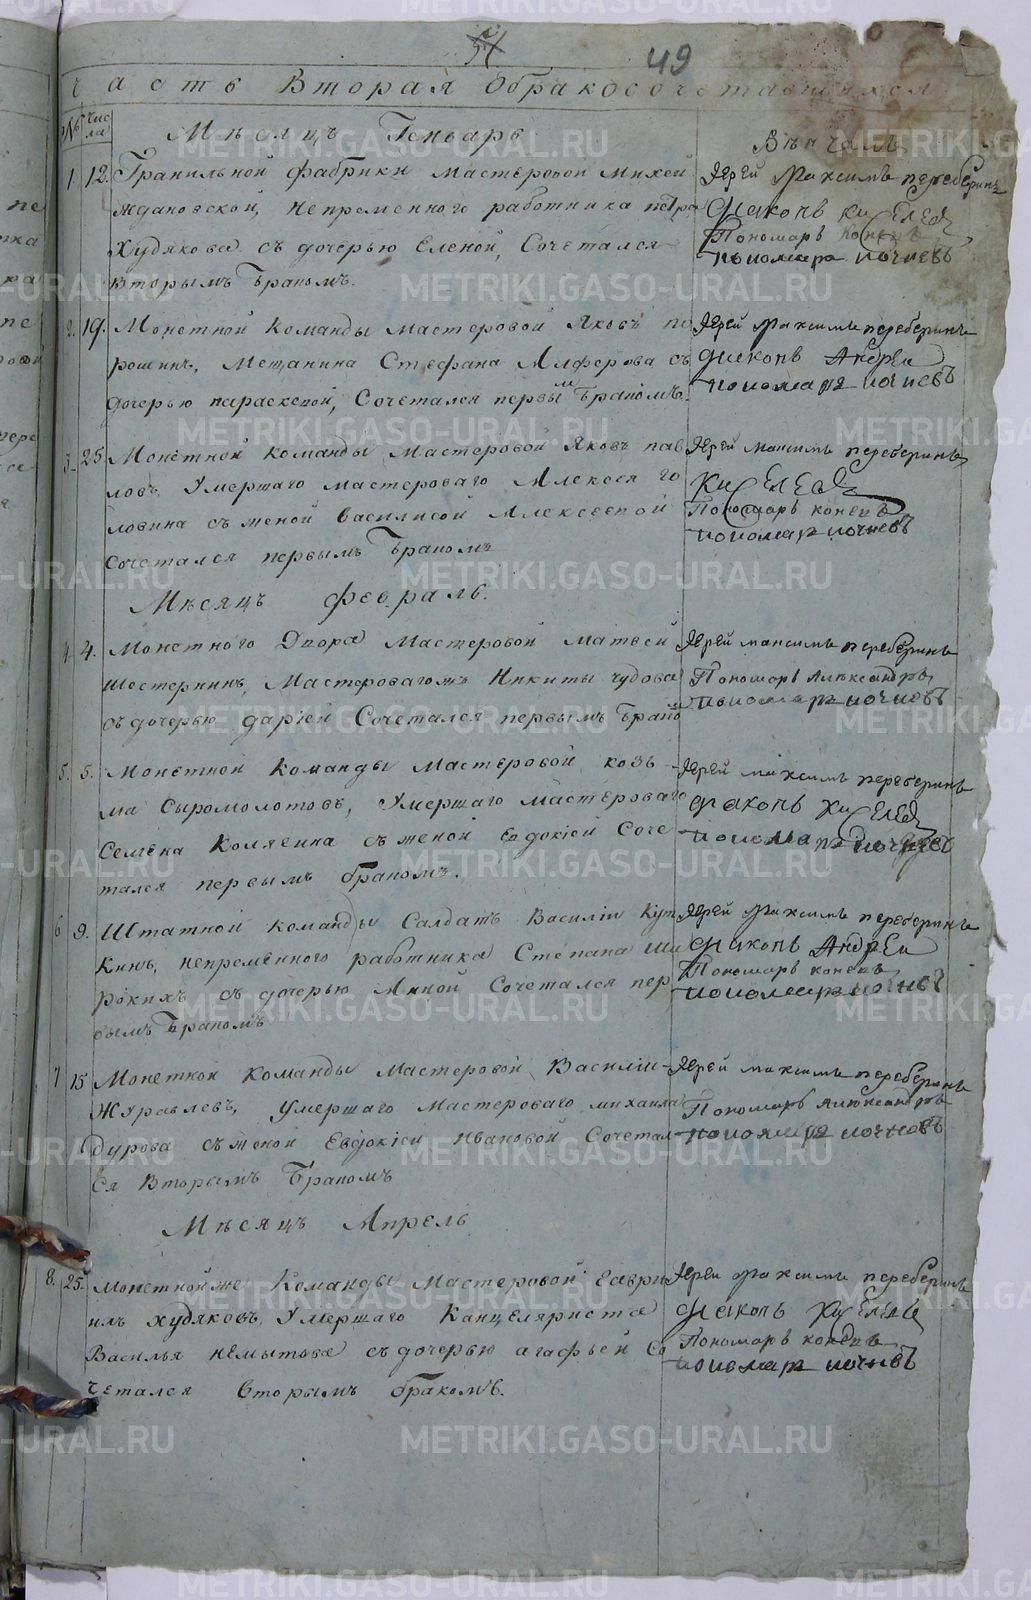 51
49
Часть Вторая Обракосочетавшихся
№ Числа
Мѣсяцъ Генварь
Вѣнчалъ
1. 12. Гранильной фабрики Мастеровой Михей
Ждановской, непременного работника петра
Худякова съ дочерью Еленой, Сочетался
вторымъ бракомъ.
Иерей Максимъ переберинъ
диаконъ Киселевъ
Пономарь коневъ
пономарь ночневъ
2. 19. Монетной Команды мастеровой Яковъ по
рошинъ, Мещанина Стефана Алферова съ
дочерью параскевой, Сочетался первымъ бракомъ.
Иерей Максимъ переберинъ
диаконъ Андреи
пономарь ночневъ
3. 25 Монетной Команды Мастеровой Яковъ пав
ловъ, Умершаго мастероваго Алексея го
ловина съ женой василисой Алексеевой
сочетался первымъ бракомъ
Иерей максимъ переберинъ
Киселевъ
Пономарь коневъ
пономарь ночневъ
Мѣсяцъ февраль.
4. 4. Монетного Двора Мастеровой Матвей
Шестернинъ, Мастероваго Никиты чудова
съ дочерью дарiей Сочетался первымъ брако
Иерей максимъ переберинъ
Пономарь Александръ
пономарь ночневъ
5. 5. Монетной Команды Мастеровой козь
ма Сыромолотовъ, Умершаго мастероваго
Семена Коляенна съ женой Евдокiей Соче
тался первымъ бракомъ.
Иерей максимъ переберинъ
диаконъ Киселев
пономарь ночневъ
6 9. Штатной команды Салдатъ Василiи Кут
кинъ, непременного работника Степана Ши
рокихъ съ дочерью Анной Сочетался пер
вымъ бракомъ
Иерей Максимъ переберинъ
диаконъ Андреи
Пономарь коневъ
пономарь ночневъ
7 15 Монетной Команды Мастеровой Василiи
Журавлевъ, умершаго мастероваго михаила
дурова съ женой Евдокiеи Ивановой Сочетал
ся Вторымъ бракомъ
Иерей максимъ переберинъ
Пономарь Александръ
пономарь ночневъ
Мѣсяцъ Апрель
8. 25. Монетной же Команды Мастеровой Гаври
илъ худяковъ, Умершаго Канцеляриста
Василья немытова съ дочерью агафьей Со
четался вторымъ бракомъ.
Иереи Максимъ переберинъ
диаконъ Киселев
Пономарь коневъ
пономарь ночневъ
METRIKI.GASO-URAL.RU